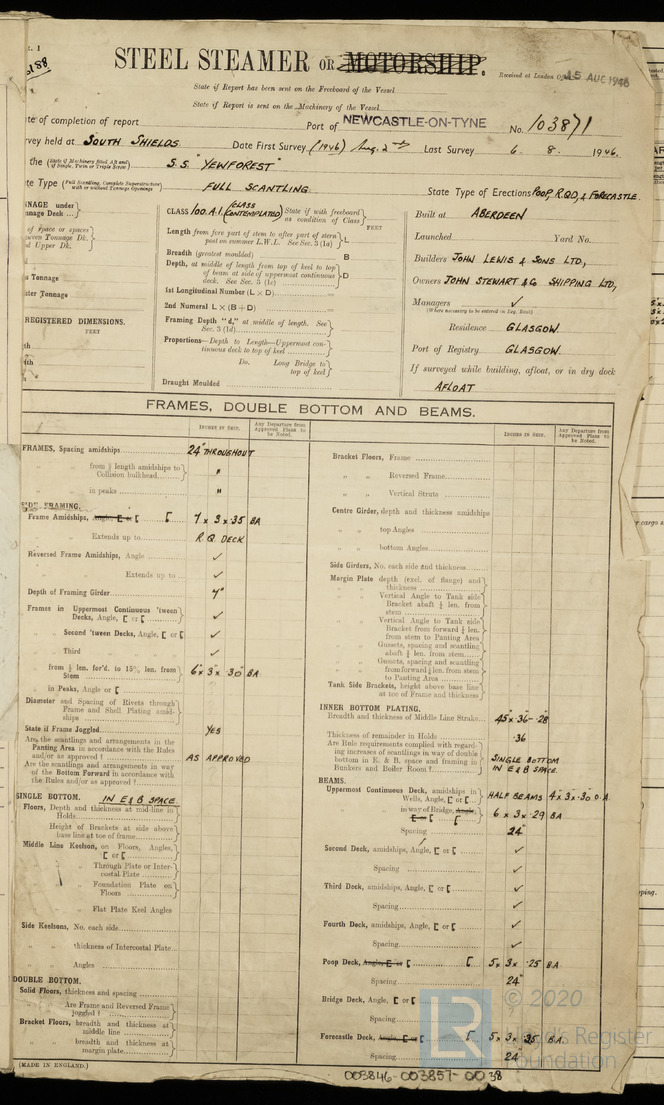 STEEL STEAMER OR MOTORSHIP.
Received at London
15 AUG 1946
State if Report has been sent on the Freeboard of the Vessel
State if Report is sent on the Machinery of the Vessel
ate of completion of report
Port of NEWCASTLE-ON-TYNE
No. 103871
rvey held at SOUTH SHIELDS.
Date First Survey (1946) Aug. 2nd Last Survey 6. 8. 1946.
the (State if Machinery fitted Aft and if Single, Twin or Triple Screw) S.S. "YEWFOREST"
te Type (Full Scantling, Complete Superstructure with or without Tonnage Openings) FULL SCANTLING.
State Type of Erections POOP, R.Q.D, & FORECASTLE.
NNAGE under
nnage Deck
of space or spaces
ween Tonnage Dk.
d Upper Dk.
s Tonnage
ster Tonnage
REGISTERED DIMENSIONS.
FEET
CLASS 100.A.1. (CLASS CONTEMPLATED) State if with freeboard as condition of Class
FEET
Length from fore part of stem to after part of stern post on summer L.W.L. See Sec. 3 (1a) L
Breadth (greatest moulded) B
Depth, at middle of length from top of keel to top of beam at side of uppermost continuous deck. See Sec. 3 (1c) D
1st Longitudinal Number (L × D)
2nd Numeral L × (B + D)
Framing Depth "d," at middle of length. See Sec. 3 (1d)
Proportions—Depth to Length—Uppermost continuous deck to top of keel
Do. Long Bridge to top of keel
Draught Moulded
Built at ABERDEEN
Launched Yard No.
Builders JOHN LEWIS & SONS LTD,
Owners JOHN STEWART & Co SHIPPING LTD,
Managers ✓
(Where necessary to be entered in Reg. Book)
Residence GLASGOW.
Port of Registry GLASGOW.
If surveyed while building, afloat, or in dry dock
AFLOAT
FRAMES, DOUBLE BOTTOM AND BEAMS.
INCHES IN SHIP.
Any Departure from Approved Plans to be Noted.
FRAMES, Spacing amidships 24" THROUGHOUT
from ⅕ length amidships to Collision bulkhead "
in peaks "
SIDE FRAMING.
Frame Amidships, Angle, [ or [ [ 7 × 3 × .35 BA
Extends up to R.Q. DECK
Reversed Frame Amidships, Angle ✓
Extends up to ✓
Depth of Framing Girder 7"
Frames in Uppermost Continuous 'tween Decks, Angle, [ or [ ✓
Second 'tween Decks, Angle, [ or [ ✓
Third ✓
from ⅕ len. for'd. to 15% len. from Stem 6" × 3" × .30" BA
in Peaks, Angle or [
Diameter and Spacing of Rivets through Frame and Shell Plating amidships
State if Frame Joggled YES
Are the scantlings and arrangements in the Panting Area in accordance with the Rules and/or as approved? AS APPROVED
Are the scantlings and arrangements in way of the Bottom Forward in accordance with the Rules and/or as approved?
SINGLE BOTTOM. IN E & B SPACE
Floors, Depth and thickness at mid-line in Holds
Height of Brackets at side above base line at toe of frame
Middle Line Keelson, on Floors, Angles, [ or [
Through Plate or Intercostal Plate
Foundation Plate on Floors
Flat Plate Keel Angles
Side Keelsons, No. each side
thickness of Intercostal Plate
Angles
DOUBLE BOTTOM.
Solid Floors, thickness and spacing
Are Frame and Reversed Frame joggled?
Bracket Floors, breadth and thickness at middle line
breadth and thickness at margin plate
(MADE IN ENGLAND.)
INCHES IN SHIP.
Any Departure from Approved Plans to be Noted.
Bracket Floors, Frame
Reversed Frame
Vertical Struts
Centre Girder, depth and thickness amidships
top Angles
bottom Angles
Side Girders, No. each side and thickness
Margin Plate depth (excl. of flange) and thickness
Vertical Angle to Tank side Bracket abaft ¼ len. from stem
Vertical Angle to Tank side Bracket from forward ¼ len. from stem to Panting Area
Gussets, spacing and scantling abaft ¼ len. from stem
Gussets, spacing and scantling from forward ¼ len. from stem to Panting Area
Tank Side Brackets, height above base line at toe of Frame and thickness
INNER BOTTOM PLATING.
Breadth and thickness of Middle Line Strake 45" × .36 - .28
Thickness of remainder in Holds .36
Are Rule requirements complied with regarding increases of scantlings in way of double bottom in E. & B. space and framing in Bunkers and Boiler Room? SINGLE BOTTOM IN E & B SPACE.
BEAMS.
Uppermost Continuous Deck, amidships in Wells, Angle, [ or [ HALF BEAMS 4" × 3" × .30 O.A
in way of Bridge, Angle, [ or [ [ 6 × 3 × .29 BA
Spacing 24"
Second Deck, amidships, Angle, [ or [ ✓
Spacing ✓
Third Deck, amidships, Angle, [ or [ ✓
Spacing ✓
Fourth Deck, amidships, Angle, [ or [ ✓
Spacing ✓
Poop Deck, Angle, [ or [ [ 5 × 3 × .25 B.A
Spacing 24"
Bridge Deck, Angle, [ or [
Spacing
Forecastle Deck, Angle, [ or [ [ 5 × 3 × .25 B.A.
Spacing 24"
LR © 2020
Lloyd's Register
Foundation
003846-003857-0038